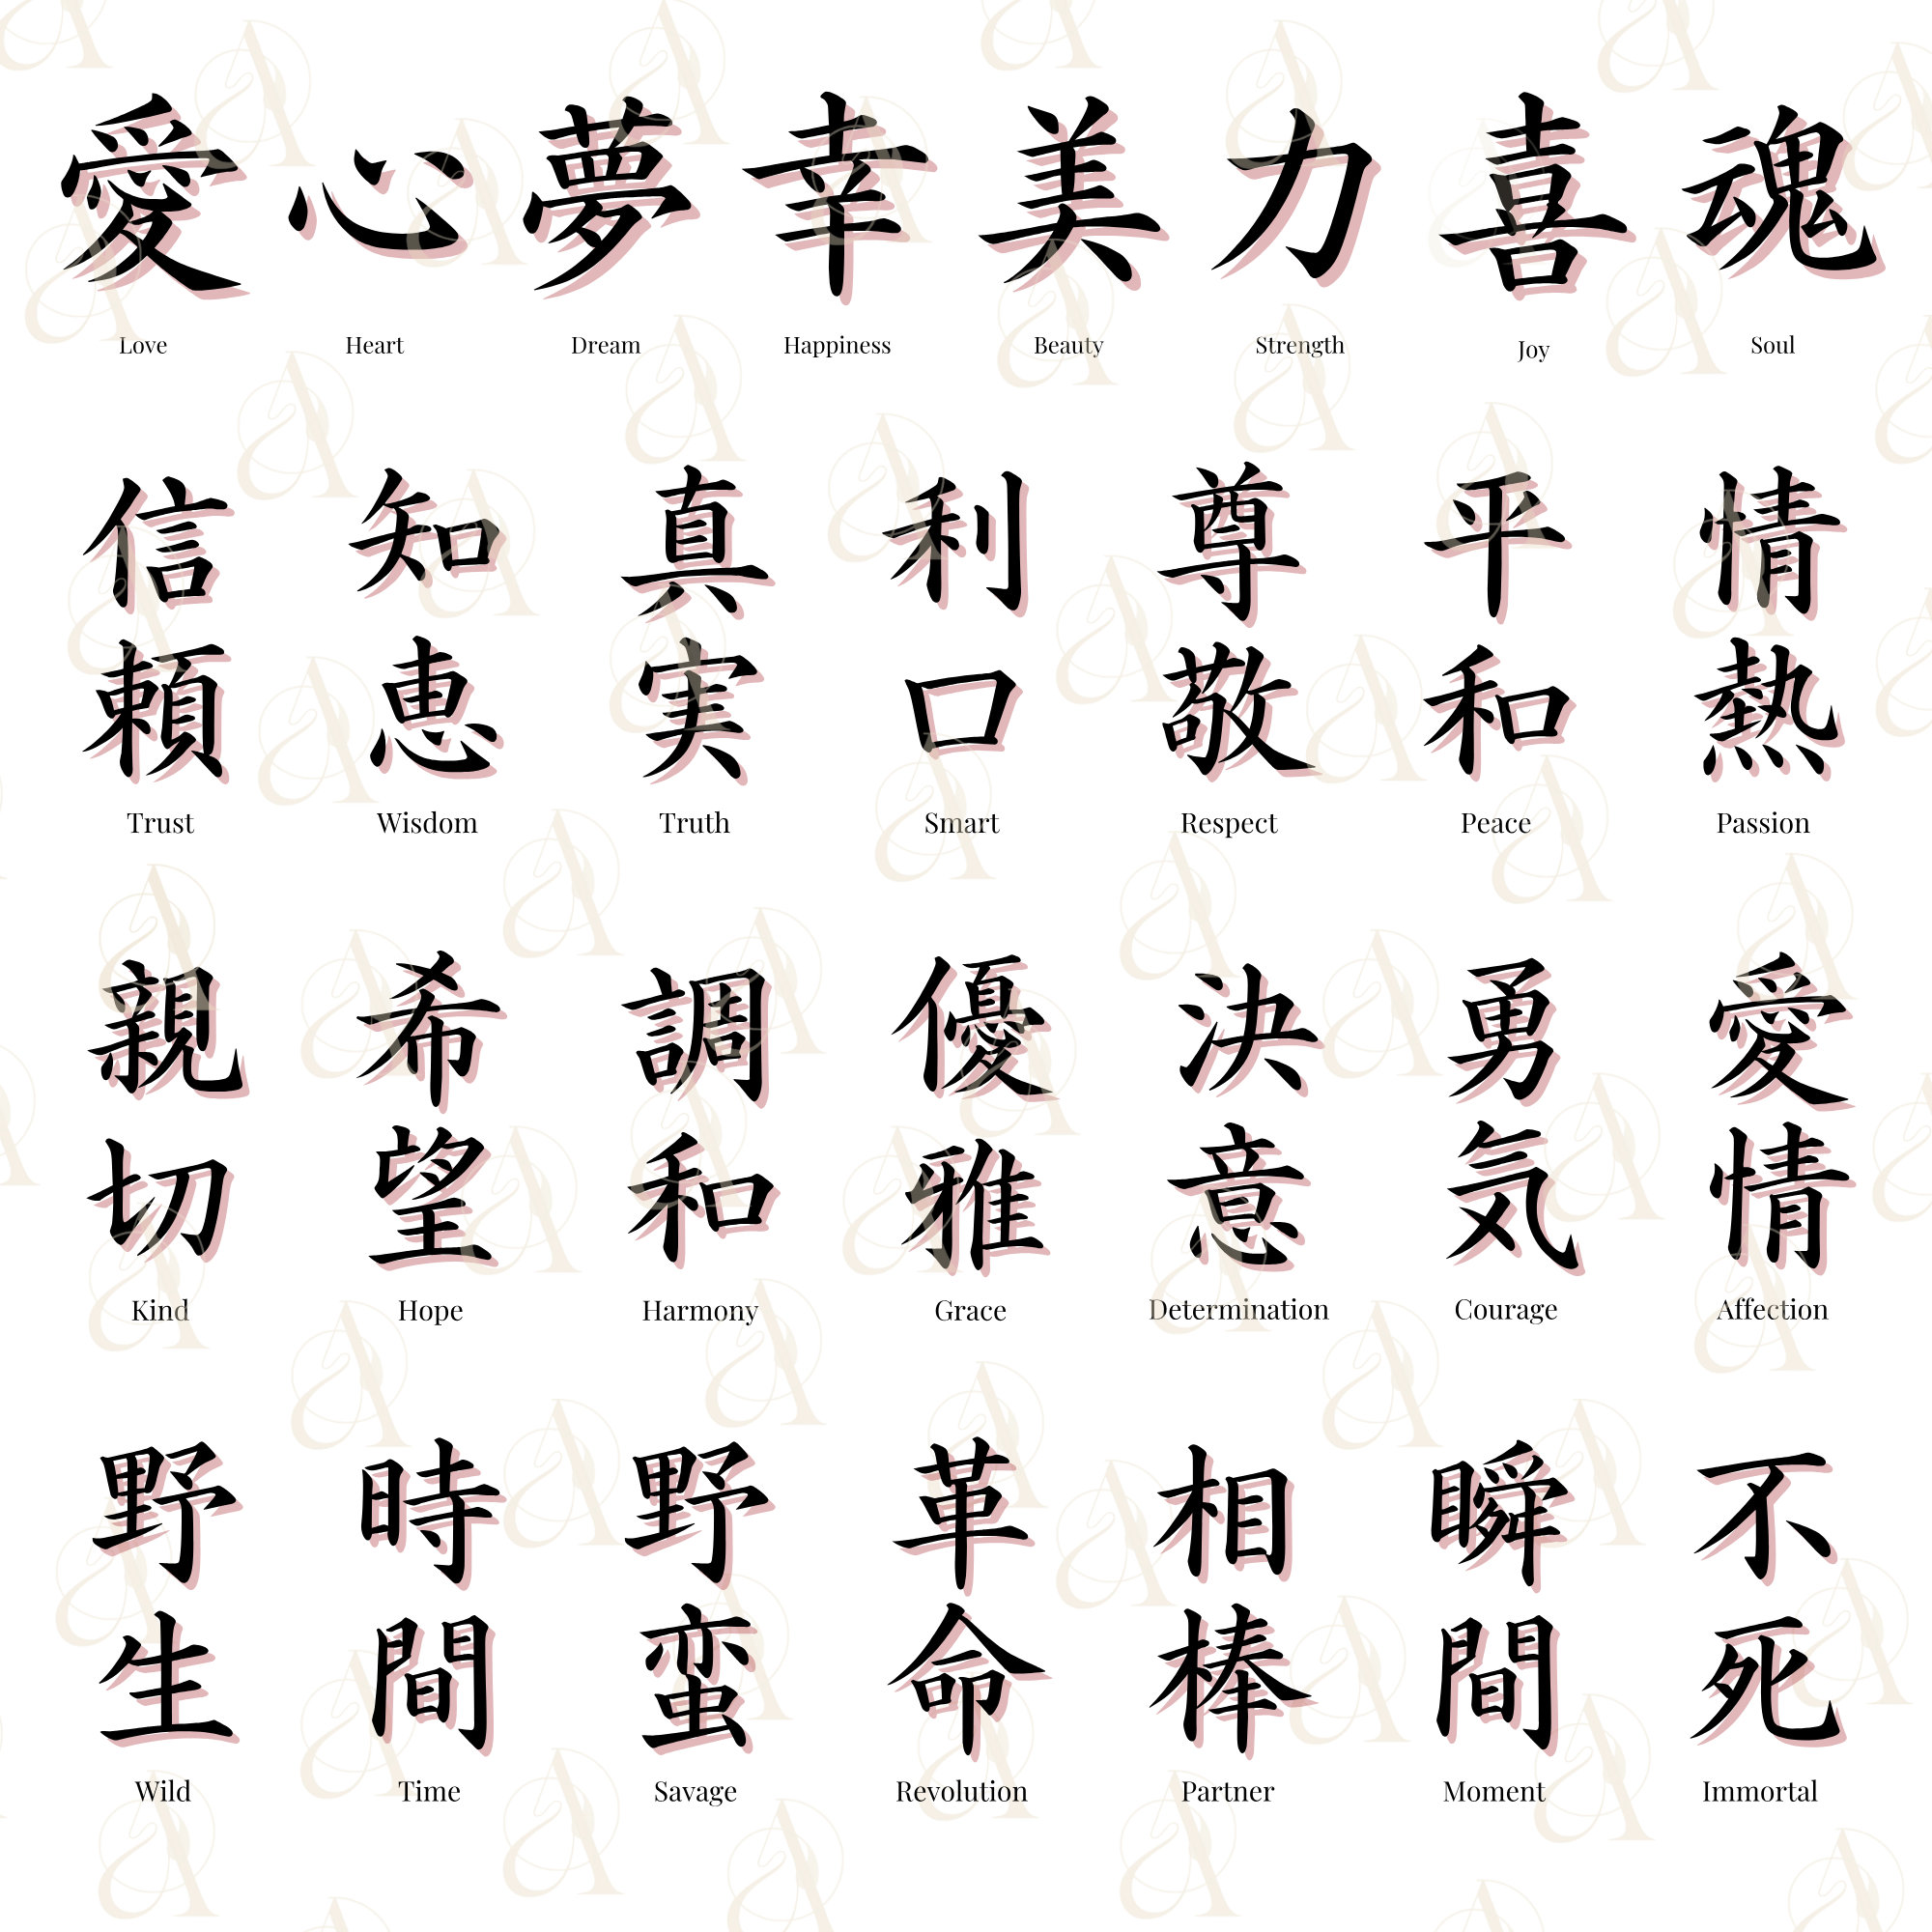 愛 心 夢 幸 美 力 喜 魂
Love Heart Dream Happiness Beauty Strength Joy Soul
信 知 真 利 尊 平 情
頼 恵 実 口 敬 和 熱
Trust Wisdom Truth Smart Respect Peace Passion
親 希 調 優 決 勇 愛
切 望 和 雅 意 気 情
Kind Hope Harmony Grace Determination Courage Affection
野 時 野 革 相 瞬 不
生 間 蛮 命 棒 間 死
Wild Time Savage Revolution Partner Moment Immortal